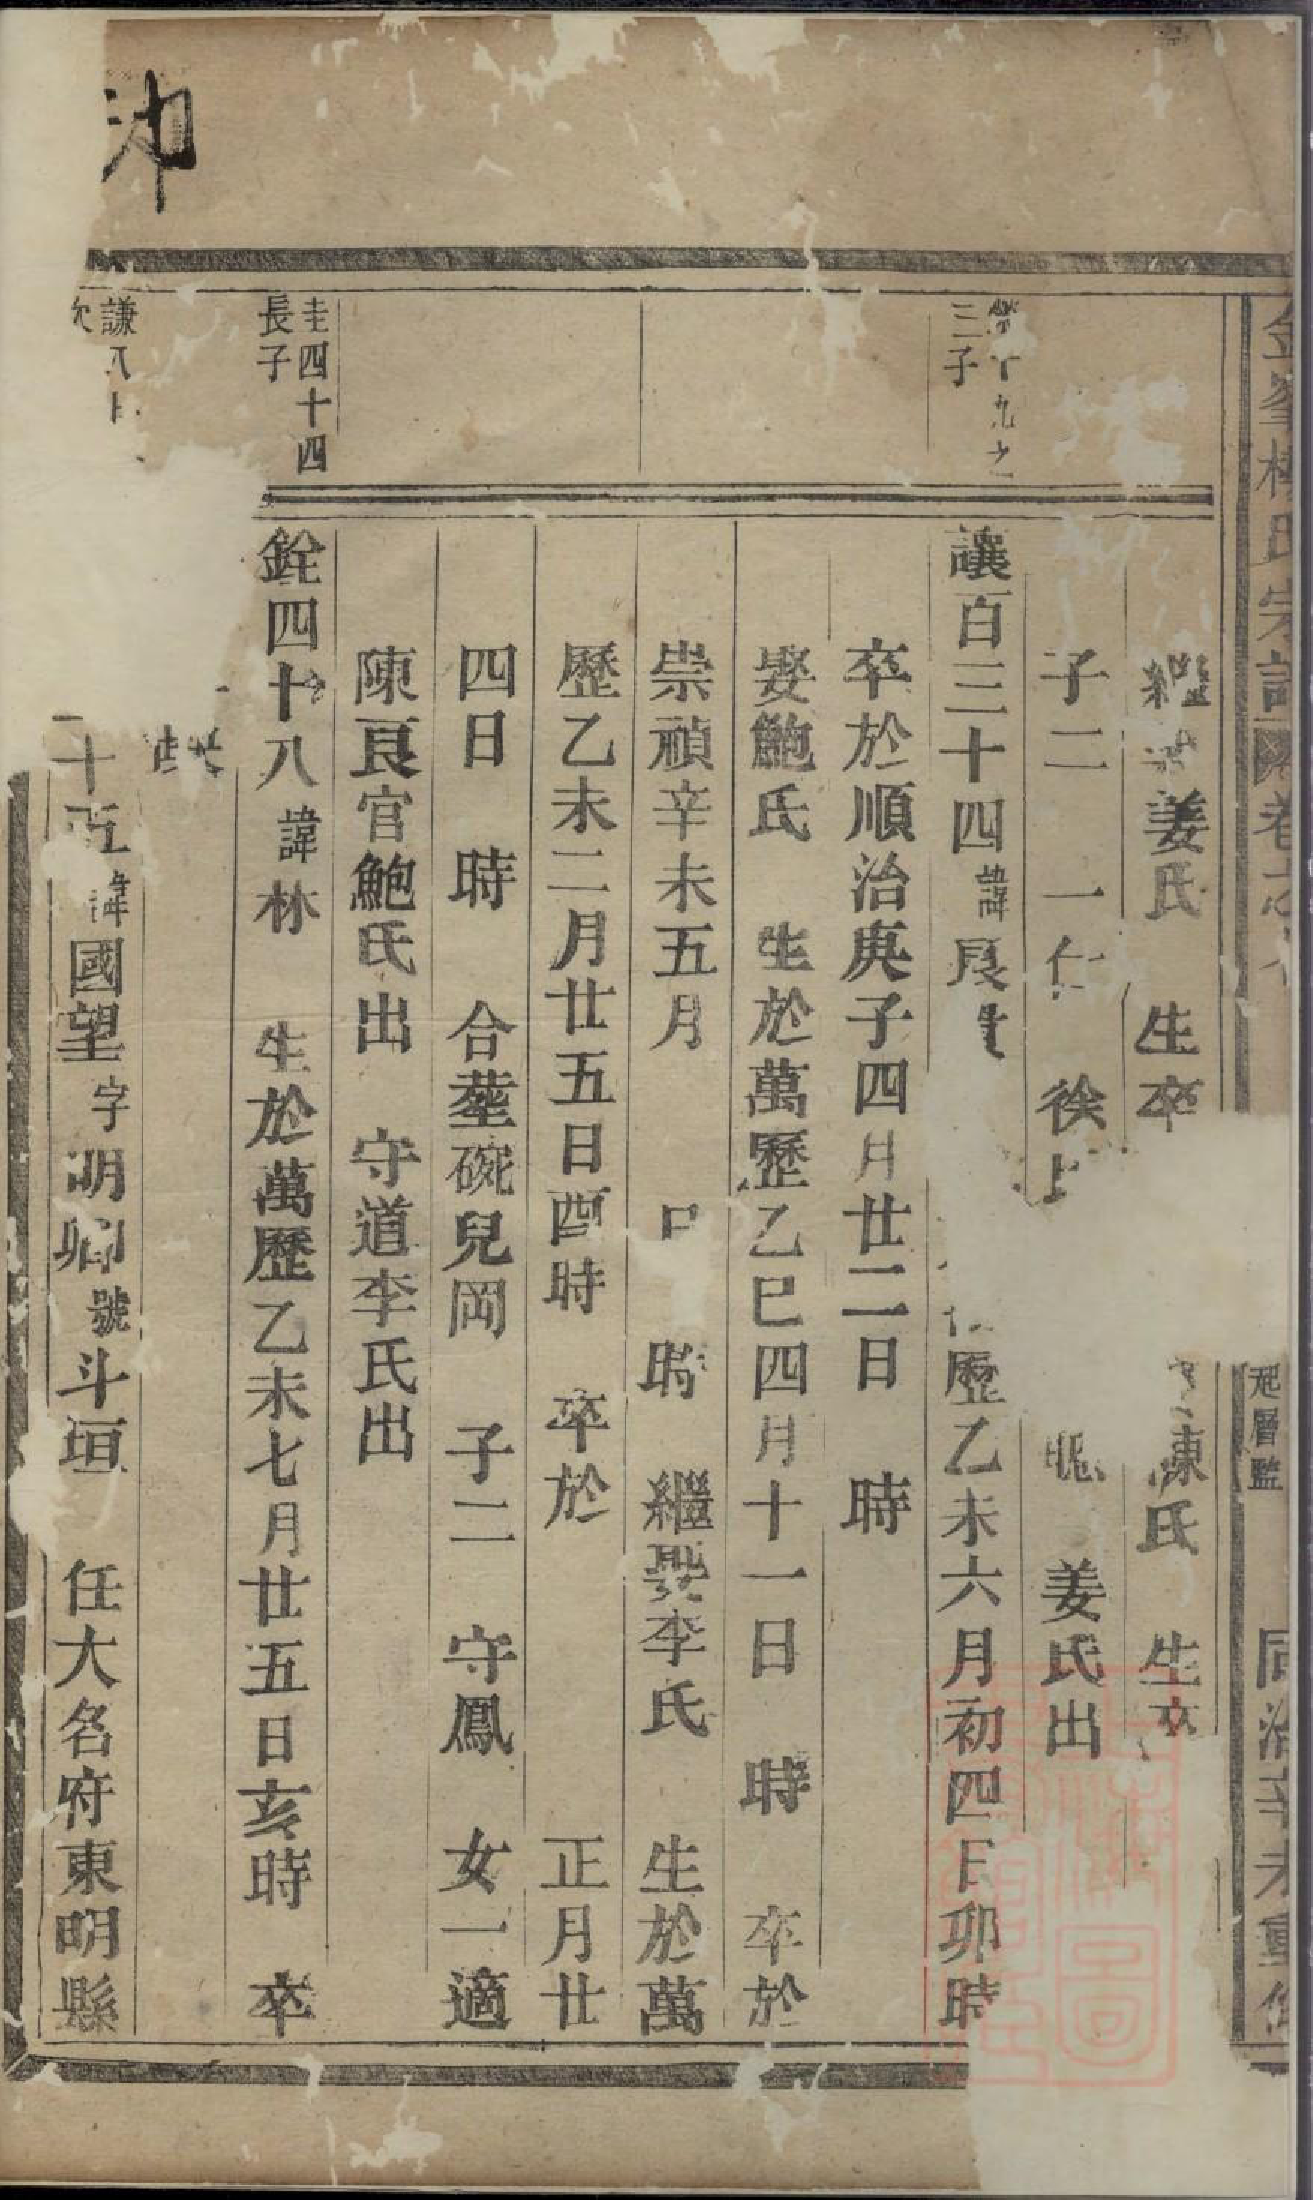 氏宗譜卷之
起層監
同治辛未重修
繼娶姜氏 生卒 陳氏 生卒
子二 一仁 徐 姜氏出
十九之
三子
讓百三十四諱良 歷乙未六月初四日卯時
卒於順治庚子四月廿二日 時
娶鮑氏 生於萬歷乙巳四月十一日 時 卒於
崇禎辛未五月 日 時 繼娶李氏 生於萬
歷乙未二月廿五日酉時 卒於 正月廿
四日 時 合塟碗兒岡 子二 守鳳 女一適
陳良官鮑氏出 守道李氏出
圭四十四
長子
銓四十八諱林 生於萬歷乙未七月廿五日亥時 卒
謙八十
次
二十五諱國望字明卿號斗垣 任大名府東明縣